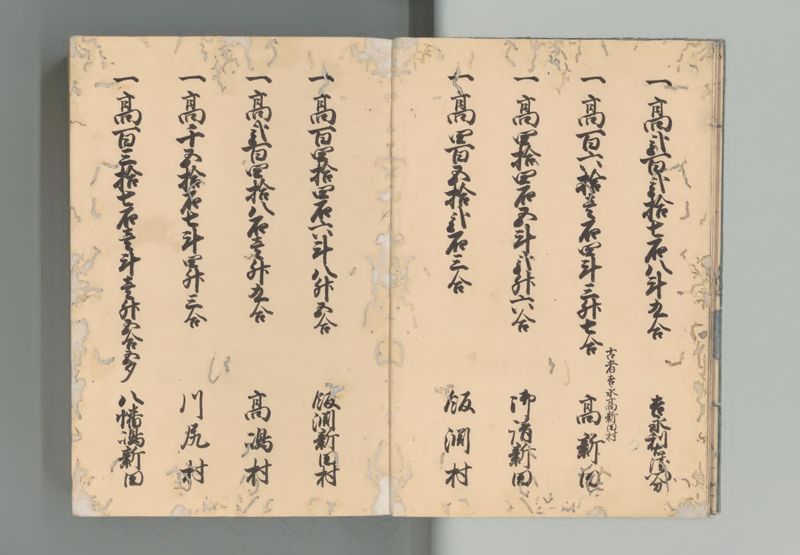 一高弐百弐拾七石八斗九合
一高百六拾壱石四斗三升七合 高新田
古者吉永高新田村
一高四拾四石五斗弐升六合 御請新田
一高四百五拾弐石三合 飯淵村
一高百四拾四石六斗八升五合 飯淵新田村
一高弐百四拾八石壱升九合 高嶋村
一高千五拾石七斗四升三合 川尻村
一高百三拾七石壱斗壱升五合余 八幡嶋新田